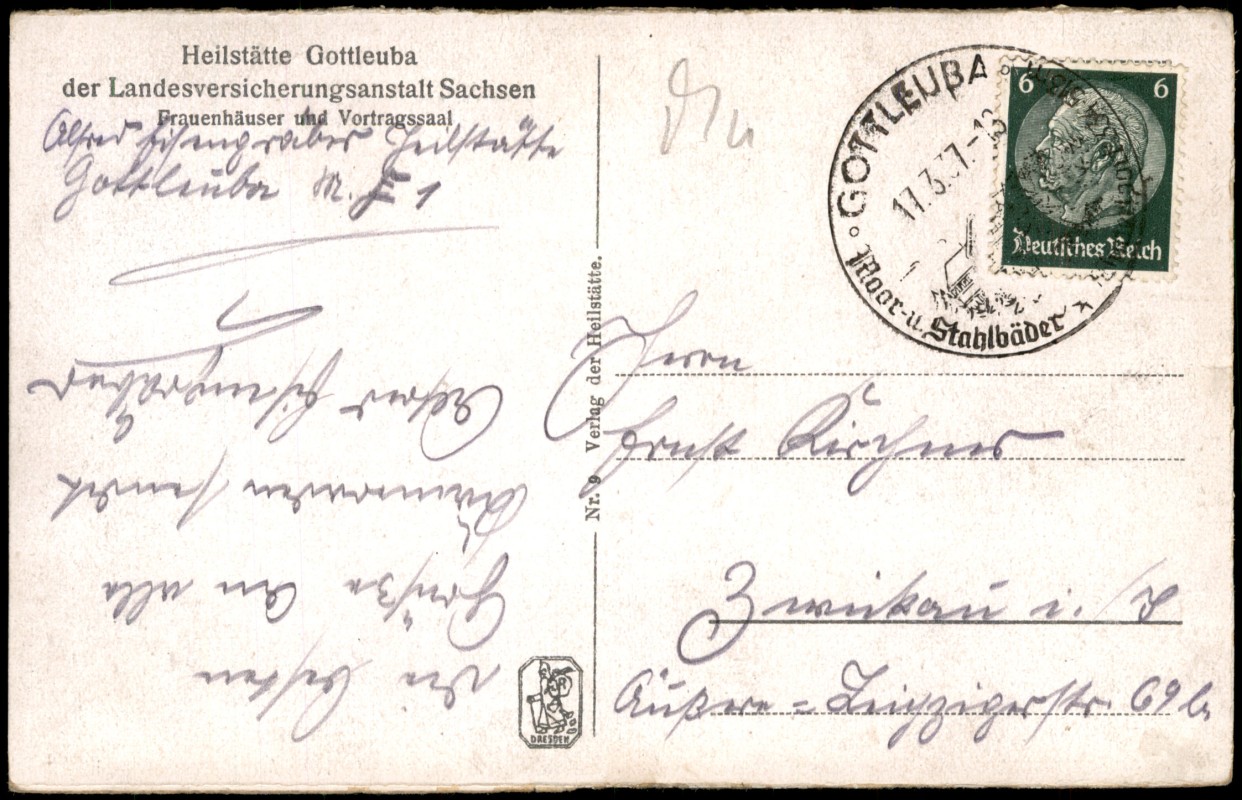 Heilstätte Gottleuba
der Landesversicherungsanstalt Sachsen
Frauenhäuser und Vortragssaal
Alfred Eisengräber Heilstätte
Gottleuba M. F 1
Die besten
Grüße an alle
Kameraden sendet
Alfred Eisengräber
Nr. 9 Verlag der Heilstätte.
DRESDEN
GOTTLEUBA
17.3.37.-18
Moor- u. Stahlbäder
6 6
Deutsches Reich
Herrn
Ernst Kirchner
Zwickau i. /S
Äußere = Leipzigerstr. 69 b